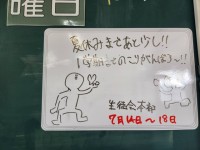 曜日
夏休みまであと少し!!
1学期ののこりがんばろ〜!!
生徒会本部
7月14日〜18日